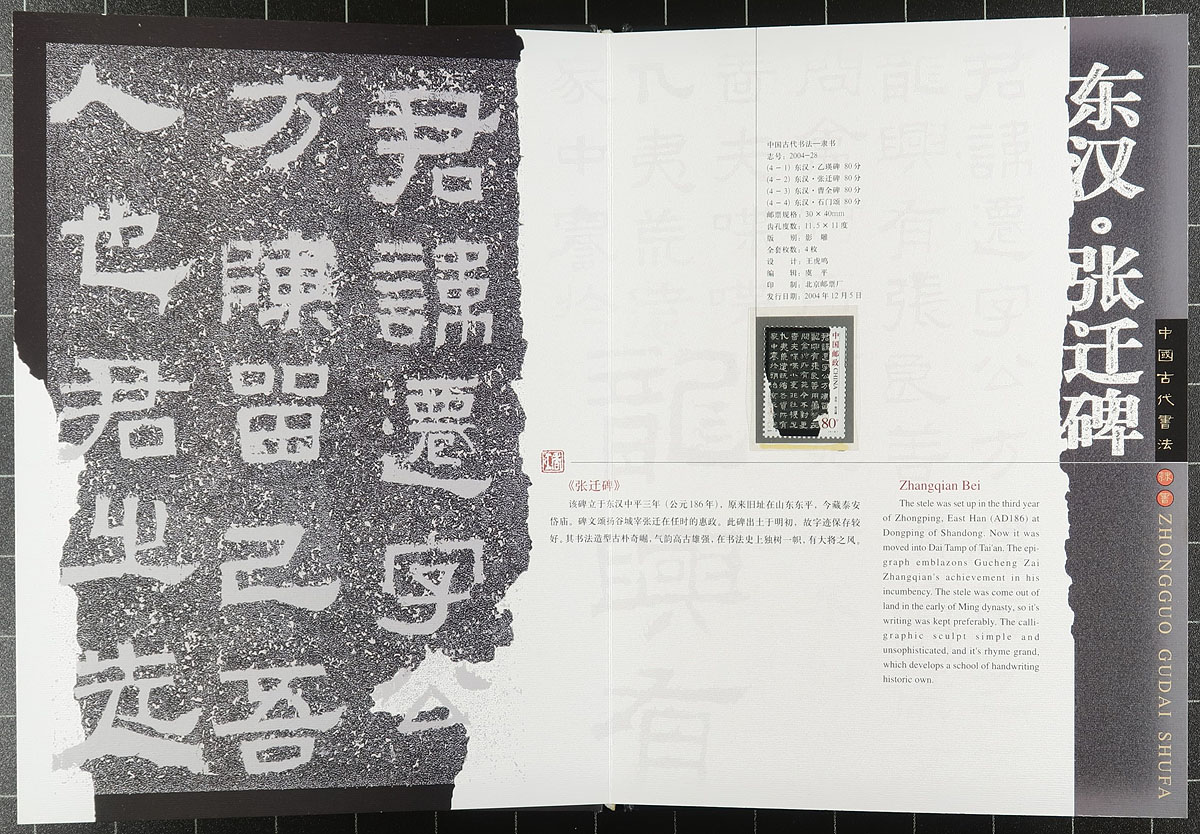 君諱遷字公
方陳留己吾
人也君之先
中国古代书法—隶书
志号：2004-28
(4－1) 东汉·乙瑛碑 80分
(4－2) 东汉·张迁碑 80分
(4－3) 东汉·曹全碑 80分
(4－4) 东汉·石门颂 80分
邮票规格：30×40mm
齿孔度数：11.5×11度
版　　别：影　雕
全套枚数：4枚
设　　计：王虎鸣
编　　辑：虞　平
印　　制：北京邮票厂
发行日期：2004年12月5日
中国邮政 CHINA
80分
《张迁碑》
该碑立于东汉中平三年（公元186年），原来旧址在山东东平，今藏泰安
岱庙。碑文颂扬谷城宰张迁在任时的惠政。此碑出土于明初，故字迹保存较
好。其书法造型古朴奇崛，气韵高古雄强，在书法史上独树一帜，有大将之风。
Zhangqian Bei
The stele was set up in the third year
of Zhongping, East Han (AD186) at
Dongping of Shandong. Now it was
moved into Dai Tamp of Tai'an. The epi-
graph emblazons Gucheng Zai
Zhangqian's achievement in his
incumbency. The stele was come out of
land in the early of Ming dynasty, so it's
writing was kept preferably. The calli-
graphic sculpt simple and
unsophisticated, and it's rhyme grand,
which develops a school of handwriting
historic own.
东汉·张迁碑
中國古代書法
隸書
ZHONGGUO GUDAI SHUFA